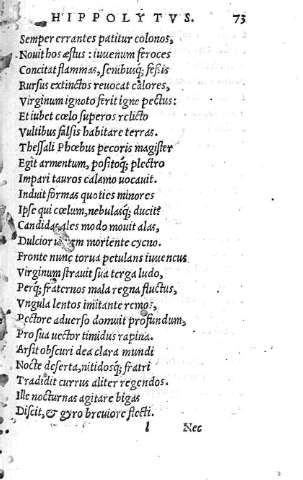 HIPPOLYTVS. 73
Semper errantes patitur colonos,
Nouit hos æstus : iuuenum feroces
Concitat flammas, senibusq; fessis
Rursus extinctos reuocat calores,
Virginum ignoto ferit igne pectus:
Et iubet cœlo superos relicto
Vultibus falsis habitare terras.
Thessali Phœbus pecoris magister
Egit armentum, positoq; plectro
Impari tauros calamo uocauit.
Induit formas quoties minores
Ipse qui cœlum, nebulasq; ducit?
Candidas ales modo mouit alas,
Dulcior uocem moriente cycno.
Fronte nunc torua petulans iuuencus
Virginum strauit sua terga ludo,
Perq; fraternos mala regna fluctus,
Vngula lentos imitante remos,
Pectore aduerso domuit profundum,
Pro sua uector timidus rapina.
Arsit obscuri dea clara mundi
Nocte deserta, nitidosq; fratri
Tradidit currus aliter regendos.
Ille nocturnas agitare bigas
Discit, & gyro breuiore flecti.
l Nec